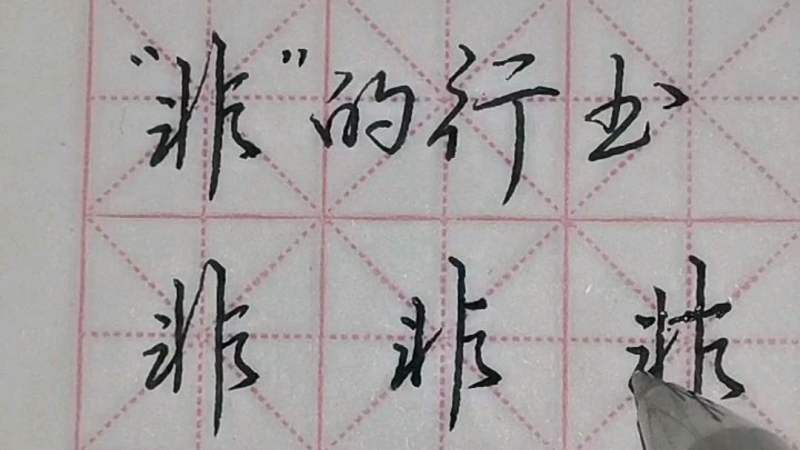 “非”的行书
非 非 非